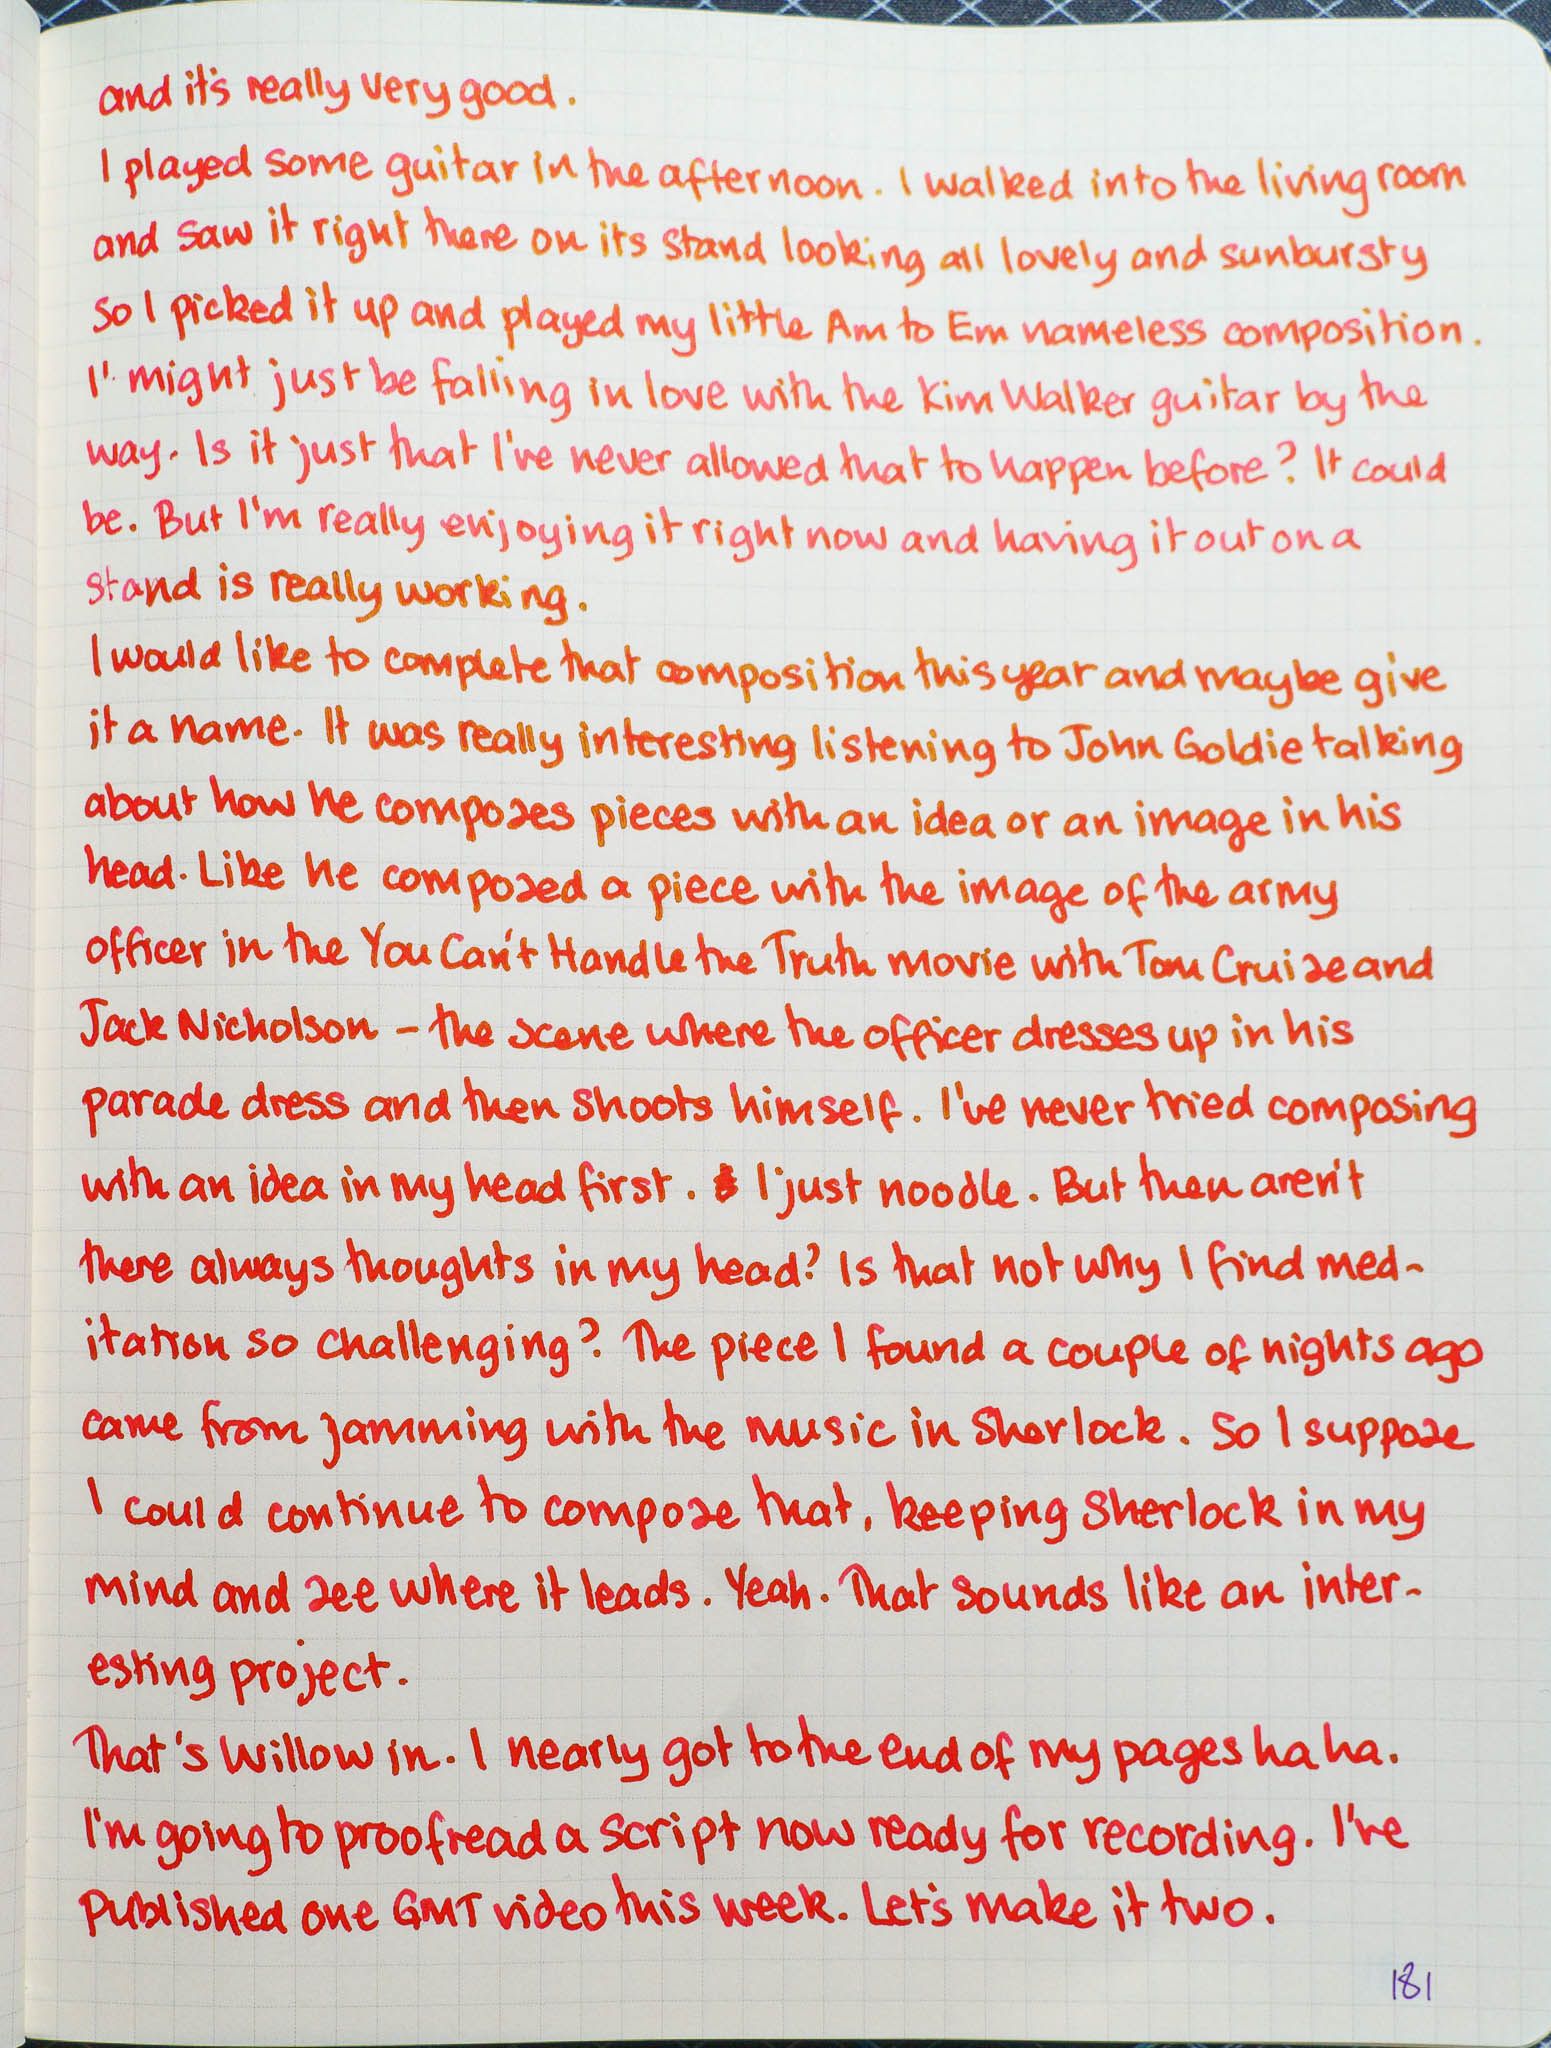 and it's really very good.
I played some guitar in the afternoon. I walked into the living room
and saw it right there on its stand looking all lovely and sunbursty
so I picked it up and played my little Am to Em nameless composition.
I might just be falling in love with the Kim Walker guitar by the
way. Is it just that I've never allowed that to happen before? It could
be. But I'm really enjoying it right now and having it out on a
stand is really working.
I would like to complete that composition this year and maybe give
it a name. It was really interesting listening to John Goldie talking
about how he composes pieces with an idea or an image in his
head. Like he composed a piece with the image of the army
officer in the You Can't Handle the Truth movie with Tom Cruise and
Jack Nicholson – the scene where the officer dresses up in his
parade dress and then shoots himself. I've never tried composing
with an idea in my head first. I just noodle. But then aren't
there always thoughts in my head? Is that not why I find med-
itation so challenging? The piece I found a couple of nights ago
came from jamming with the music in Sherlock. So I suppose
I could continue to compose that, keeping Sherlock in my
mind and see where it leads. Yeah. That sounds like an inter-
esting project.
That's Willow in. I nearly got to the end of my pages ha ha.
I'm going to proofread a script now ready for recording. I've
published one GMT video this week. Let's make it two.
181